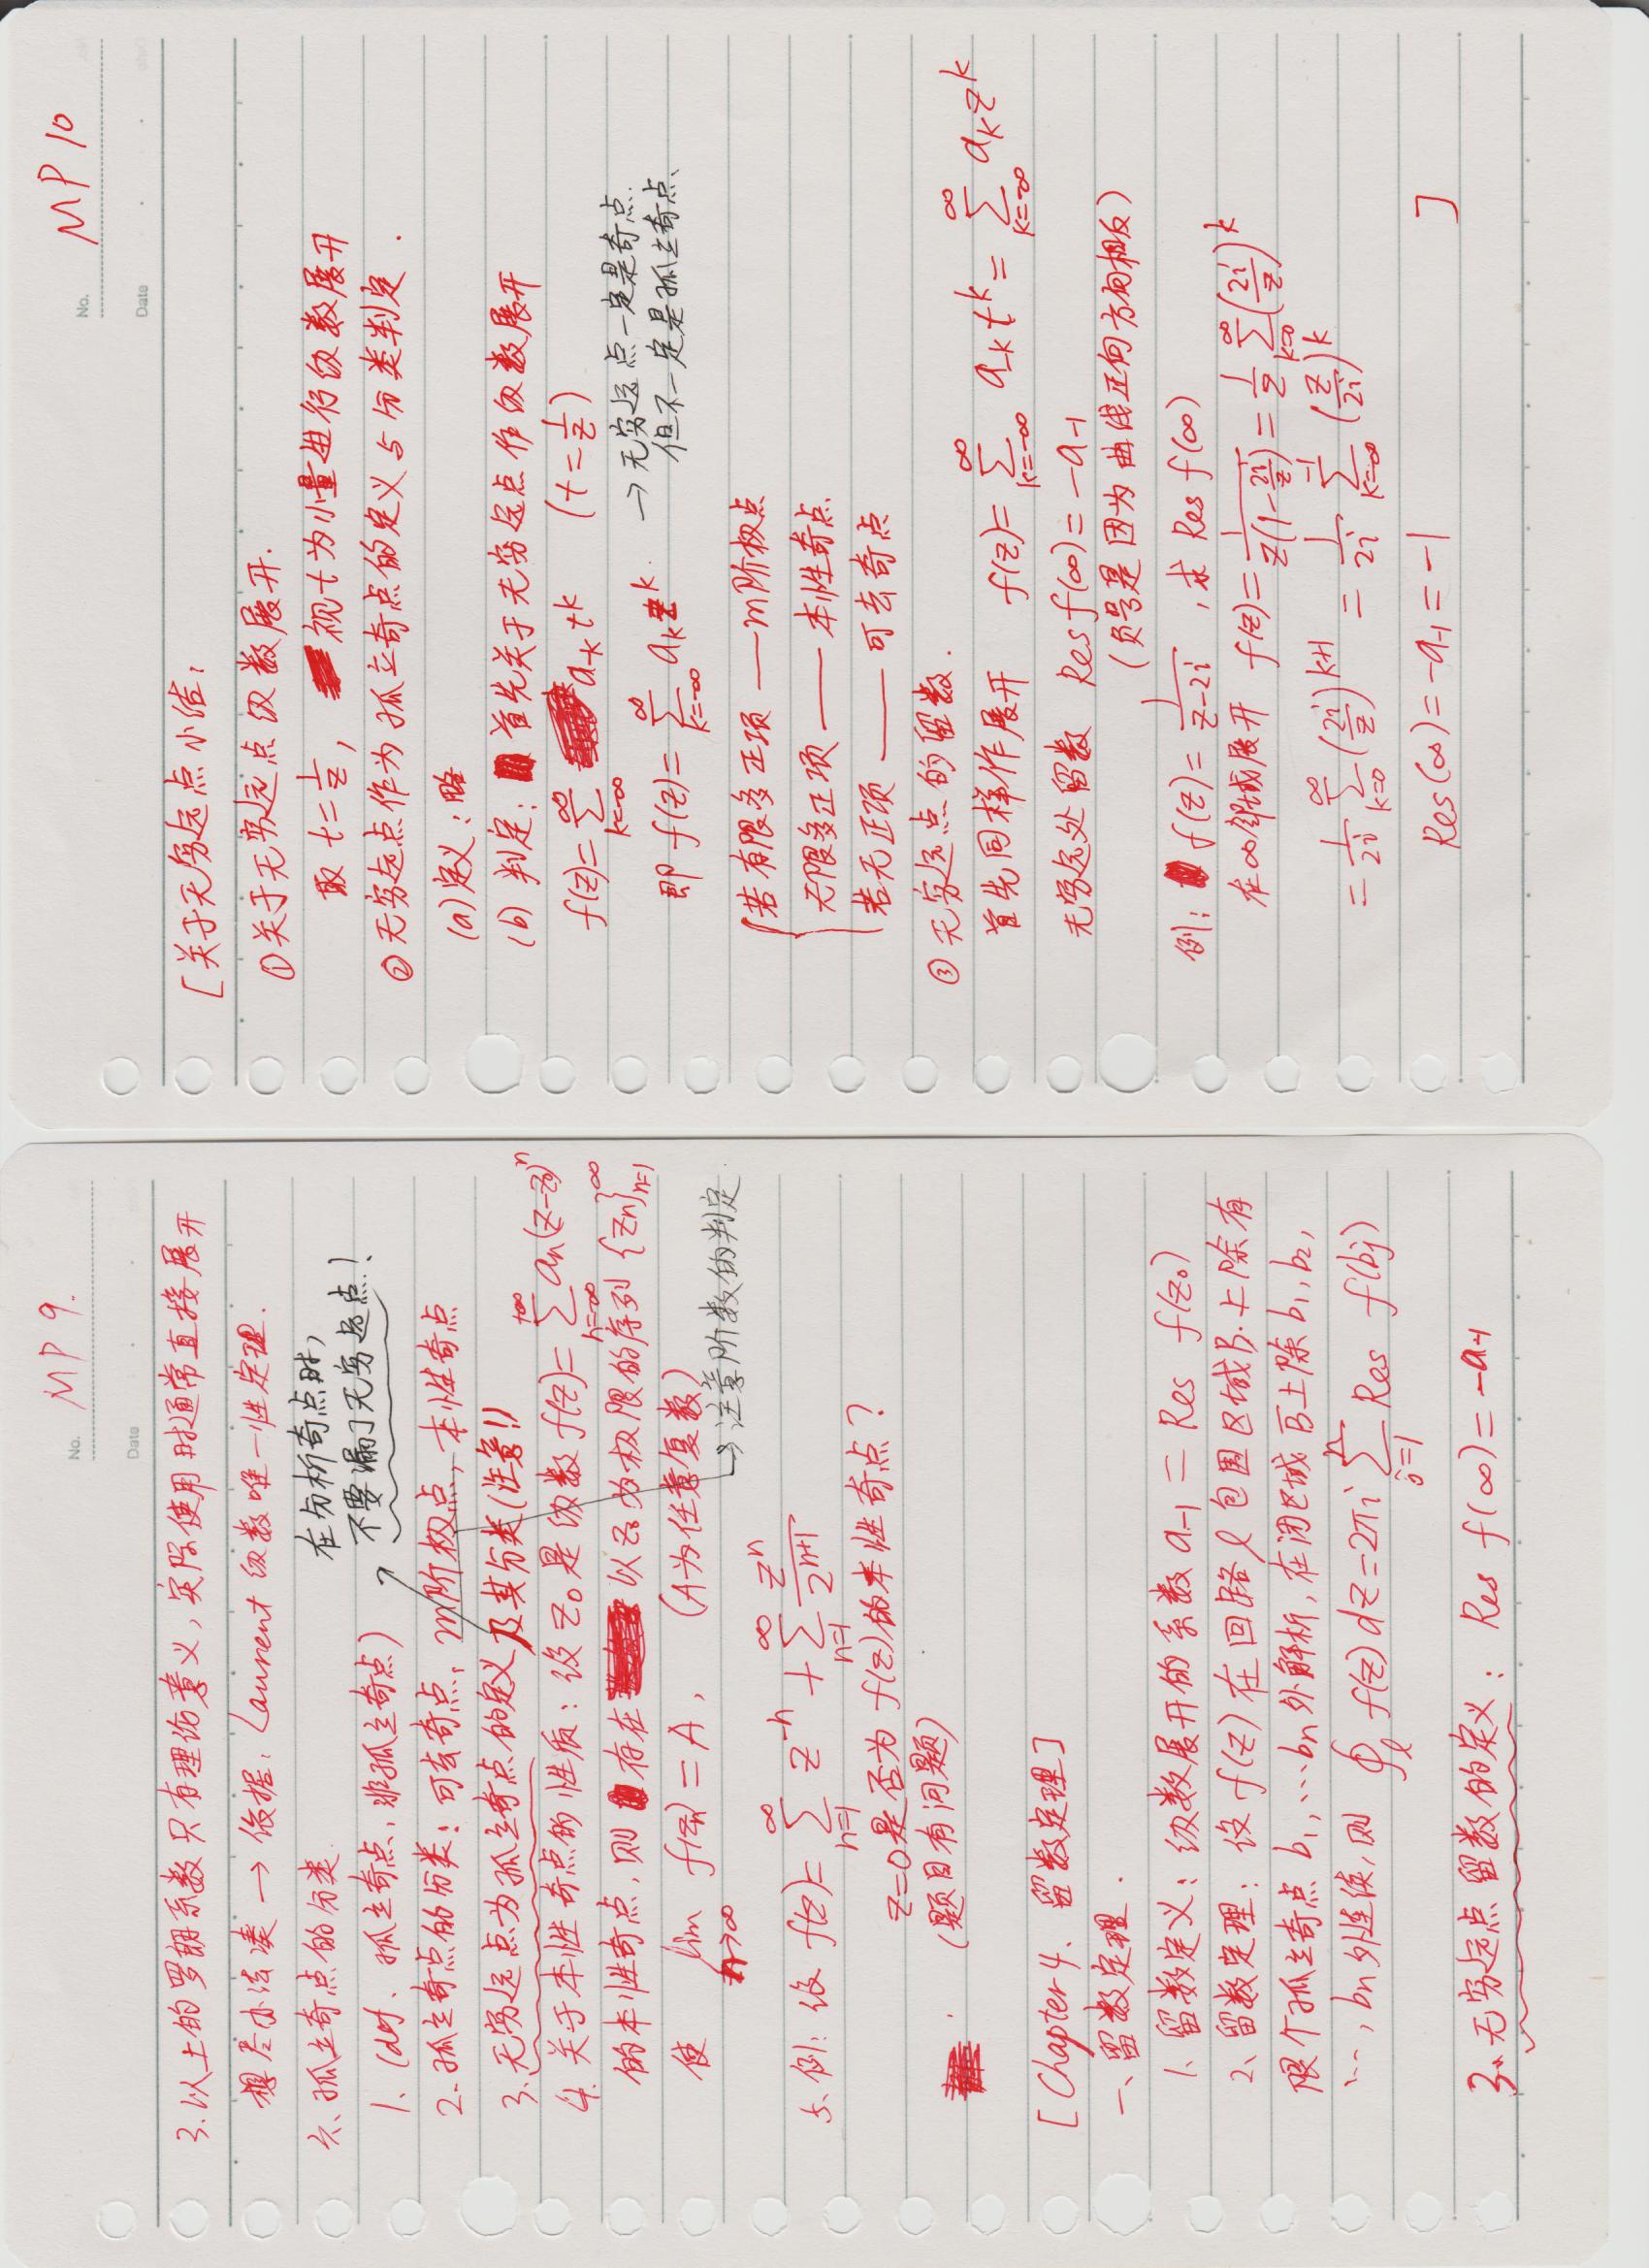 No. MP 9.
Date
3.以上的罗朗系数只有理论意义,实际使用时通常直接展开
想尽办法凑 → 依据:Laurent 级数唯一性定理.
六、孤立奇点的分类.
在分析奇点时,
不要漏了无穷远点!
1、(def、孤立奇点,非孤立奇点)
2、孤立奇点的分类:可去奇点,m阶极点,本性奇点
3、无穷远点为孤立奇点的定义及其分类(注意!!)
4、关于本性奇点的性质:设 z₀ 是级数 f(z)=∑_{n=-∞}^{+∞} aₙ(z-z₀)ⁿ
的本性奇点,则存在以z₀为极限的序列 {zₙ}_{n=1}^{∞}
使 lim_{n→∞} f(zₙ) = A, (A为任意复数)
→ 注意阶数的判定.
5、例:设 f(z)=∑_{n=1}^{∞} z^{-n} + ∑_{n=1}^{∞} zⁿ/2^{n+1}
z=0是否为 f(z)的本性奇点?
(题目有问题)
[Chapter 4、留数定理]
一、留数定理.
1、留数定义:级数展开的系数 a₋₁ = Res f(z₀)
2、留数定理:设 f(z) 在回路 l 包围区域B.上除有
限个孤立奇点 b₁,…bₙ 外解析,在闭区域 B̅上除 b₁,b₂,
…,bₙ 外连续,则 ∮_l f(z)dz=2πi ∑_{j=1}^{n} Res f(bj)
3、无穷远点留数的定义: Res f(∞)=-a₋₁
No. MP 10
Date
[关于无穷远点小结:
①关于无穷远点级数展开.
取 t=1/z, 视t为小量进行级数展开
②无穷远点作为孤立奇点的定义与分类判定.
(a)定义:略
(b) 判定: 首先关于无穷远点作级数展开
f(z)=∑_{k=-∞}^{∞} a₋ₖtᵏ (t=1/z)
→ 无穷远点一定是奇点.
即 f(z)=∑_{k=-∞}^{∞} aₖzᵏ.
但不一定是孤立奇点、
若有限多正项 —— m阶极点
无限多正项 —— 本性奇点
若无正项 —— 可去奇点
③ 无穷远点的留数.
首先同样作展开 f(z)=∑_{k=-∞}^{∞} a₋ₖtᵏ=∑_{k=-∞}^{∞} aₖzᵏ
无穷远处留数 Res f(∞)=-a₋₁
(负号是因为曲线正向方向相反)
例: f(z)=1/(z-2i) ,求 Res f(∞)
在∞邻域展开 f(z)=1/(z(1-2i/z))=1/z ∑_{k=0}^{∞}(2i/z)ᵏ
=1/2i ∑_{k=0}^{∞}(2i/z)^{k+1} = 1/2i ∑_{k=-∞}^{-1}(z/2i)ᵏ
Res(∞)=-a₋₁=-1 ]